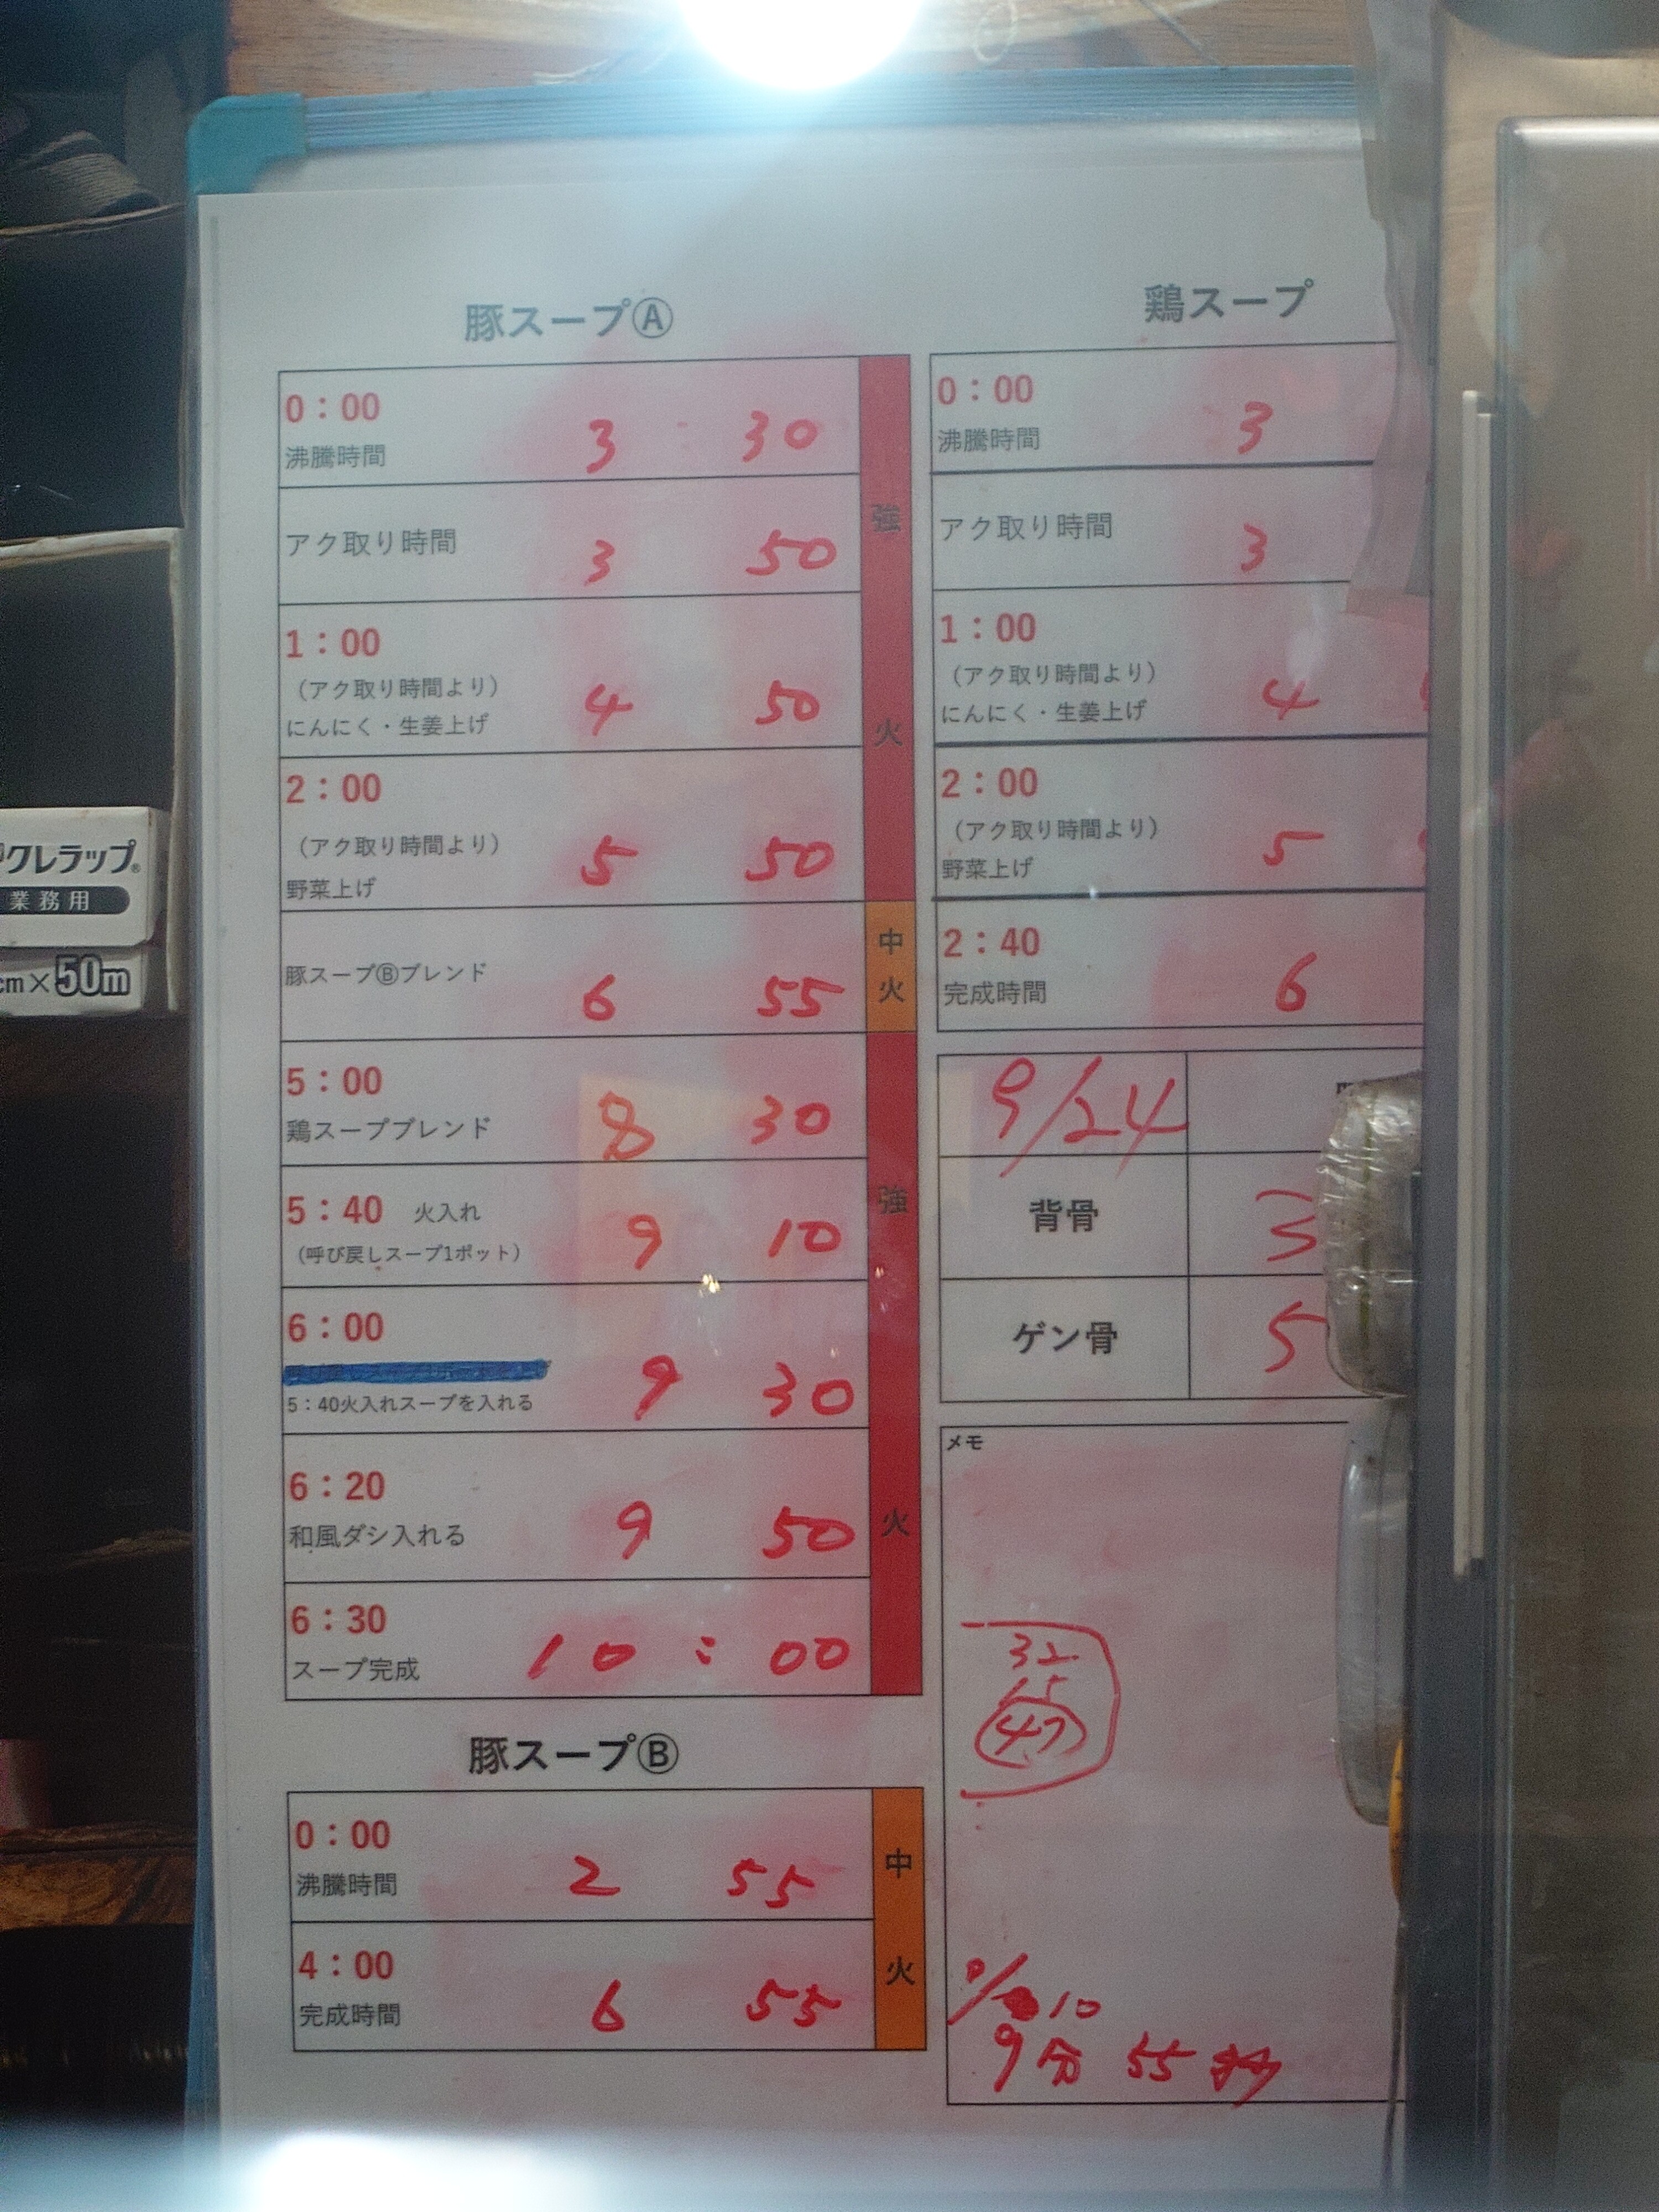 豚スープⒶ
0:00
沸騰時間
3 : 30
アク取り時間
3 50
1:00
（アク取り時間より）
にんにく・生姜上げ
4 50
2:00
（アク取り時間より）
野菜上げ
5 50
強火
豚スープⒷブレンド
6 55
中火
5:00
鶏スープブレンド
8 30
5:40 火入れ
（呼び戻しスープ1ポット）
9 10
6:00
5:40火入れスープを入れる
9 30
6:20
和風ダシ入れる
9 50
6:30
スープ完成
10 : 00
強火
豚スープⒷ
0:00
沸騰時間
2 55
4:00
完成時間
6 55
中火
鶏スープ
0:00
沸騰時間
3
アク取り時間
3
1:00
（アク取り時間より）
にんにく・生姜上げ
4
2:00
（アク取り時間より）
野菜上げ
5
2:40
完成時間
6
9/24
背骨
ゲン骨
5
メモ
32
15
47
10
9分 55秒
クレラップ®
業務用
cm×50m